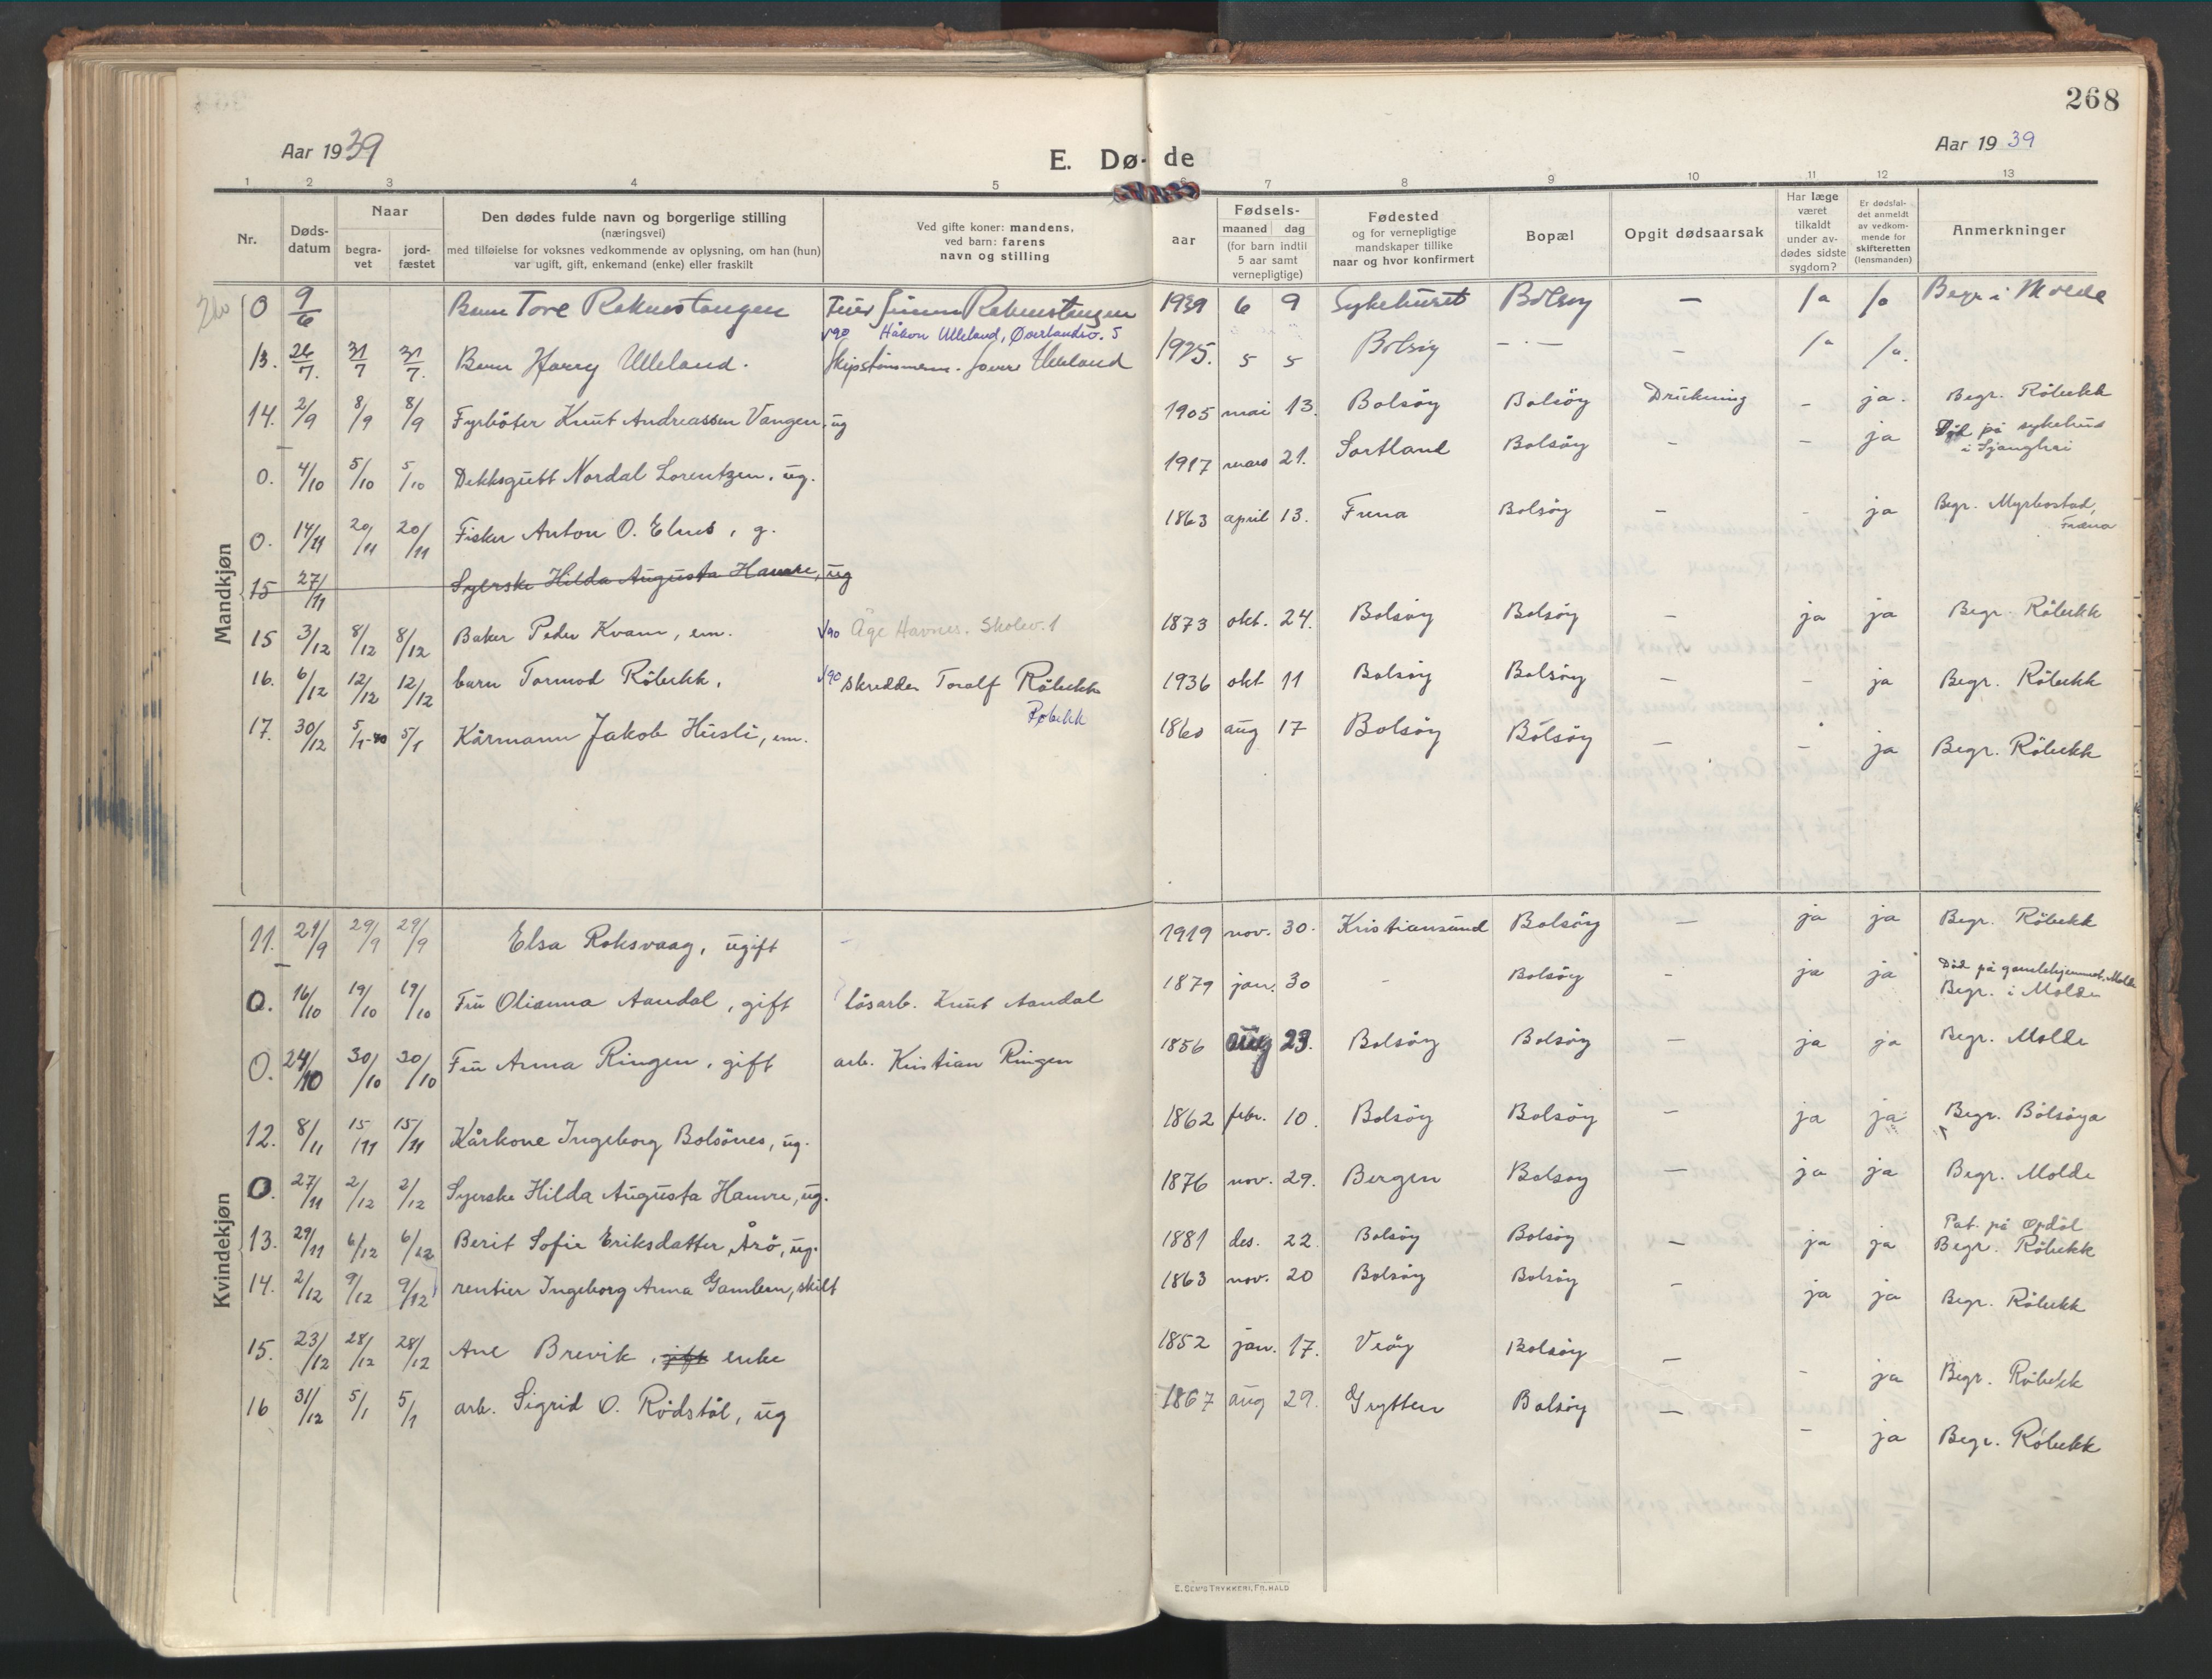 268
Aar 1939
E. Dø- de
Aar 1939
1 2 3 4 5 6 7 8 9 10 11 12 13
Nr.
Døds-
datum
Naar
begra-
vet
jord-
fæstet
Den dødes fulde navn og borgerlige stilling
(næringsvei)
med tilføielse for voksnes vedkommende av oplysning, om han (hun)
var ugift, gift, enkemand (enke) eller fraskilt
Ved gifte koner: mandens,
ved barn: farens
navn og stilling
Fødsels-
aar
maaned dag
(for barn indtil
5 aar samt
vernepligtige)
Fødested
og for vernepligtige
mandskaper tillike
naar og hvor konfirmert
Bopæl
Opgit dødsaarsak
Har læge
været
tilkaldt
under av-
dødes sidste
sygdom?
Er dødsfal-
det anmeldt
av vedkom-
mende for
skifteretten
(lensmanden)
Anmerkninger
Mandkjøn
0 9/6 Barn Tore Reknestangen Simen Reknestangen 1939 6 9 Sykehuset Bolsøy — Ja Ja Begr. i Molde
v90 Håkon Ulleland, Øverlandsv. 5
13. 26/7. 31/7 31/7. Barn Harry Ulleland. Skipstømmerm. Ulleland 1925. 5 5 Bolsøy —·— — Ja Ja.
14. 2/9 8/9 8/9 Fyrböter Knut Andreassen Vangen, ug 1905 mai 13. Bolsöy Bolsöy Drukning – ja. Begr. Röbekk
0. 4/10 5/10 5/10 Dekksgutt Nordal Lorentzen. ug. 1917 mars 21. Sortland Bolsöy – – ja Död på sykehus
i Sjanghai
0. 14/11 20/11 20/11 Fisker Anton O. Elnes, g. 1863 april 13. Frena Bolsöy – – ja Begr. Myrbostad,
Fræna
15 27/11 Syerske Hilda Augusta Hamre, ug
15 3/12 8/12 8/12 Baker Peder Kvam, em. v90 Åge Havnes. Skolev. 1 1873 okt. 24. Bolsöy Bolsöy – ja ja Begr. Röbekk
16. 6/12 12/12 12/12 barn Tormod Röbekk, v90 skredder Toralf Röbekk 1936 okt 11 Bolsöy Bolsöy – – ja Begr. Röbekk
Røbekk
17. 30/12 5/1-40 5/1 Kårmann Jakob Husli, em. 1860 aug 17 Bolsöy Bölsöy — – ja Begr. Röbekk
Kvindekjøn
11. 21/9 29/9 29/9 Elsa Roksvaag, ugift – 1919 nov. 30. Kristiansund Bolsöy — ja ja Begr. Röbekk
0. 16/10 19/10 19/10 Fru Olianna Aandal, gift lösarb. Knut Aandal 1879 jan. 30 – Bolsöy – ja ja Död på gamlehjemmet, Molde
Begr. i Molde
0. 24/10 30/10 30/10 Fru Anna Ringen, gift arb. Kristian Ringen 1856 aug 23. Bolsöy Bolsöy — ja ja Begr. Molde
12. 8/11 15/11 15/11 Kårkone Ingeborg Bolsönes, ug. 1862 febr. 10. Bolsöy Bolsöy – ja ja Begr. Bolsöya
0. 27/11 2/12 2/12 Syerske Hilda Augusta Hamre, ug. 1876 nov. 29. Bergen Bolsøy — ja ja Begr. Molde
13. 29/11 6/12 6/12 Berit Sofie Eriksdatter Årö, ug. 1881 des. 22. Bolsöy Bolsöy — ja ja Pat. på Opdöl
Begr. Röbekk
14. 2/12 9/12 9/12 rentier Ingeborg Anna Gamlem, skilt 1863 nov. 20 Bolsöy Bolsöy – ja ja Begr. Röbekk
15. 23/12 28/12 28/12 Ane Brevik, gift enke 1852 jan. 17. Veöy Bolsöy — – ja Begr. Röbekk
16 31/12 5/1 5/1 arb. Sigrid O. Rödstöl, ug 1867 aug 29. Grytten Bolsöy — – ja Begr. Röbekk